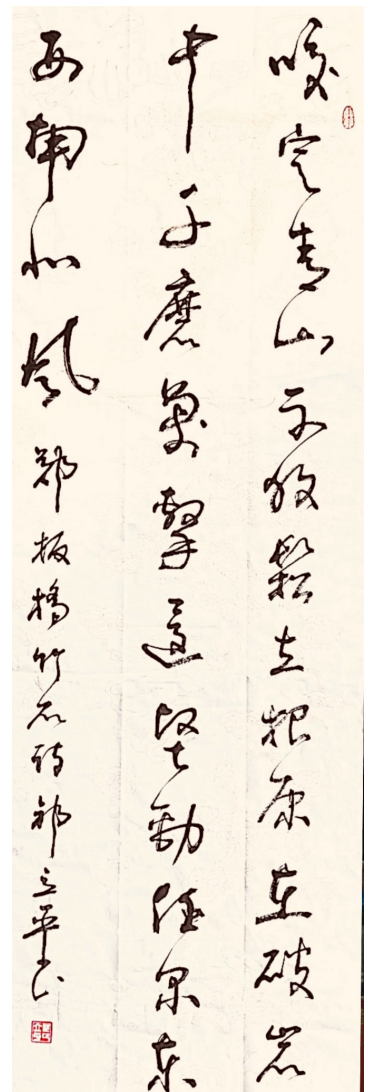 咬定青山不放鬆立根原在破岩
中千磨萬擊還堅勁任尔东
西南北風 鄭板橋竹石詩